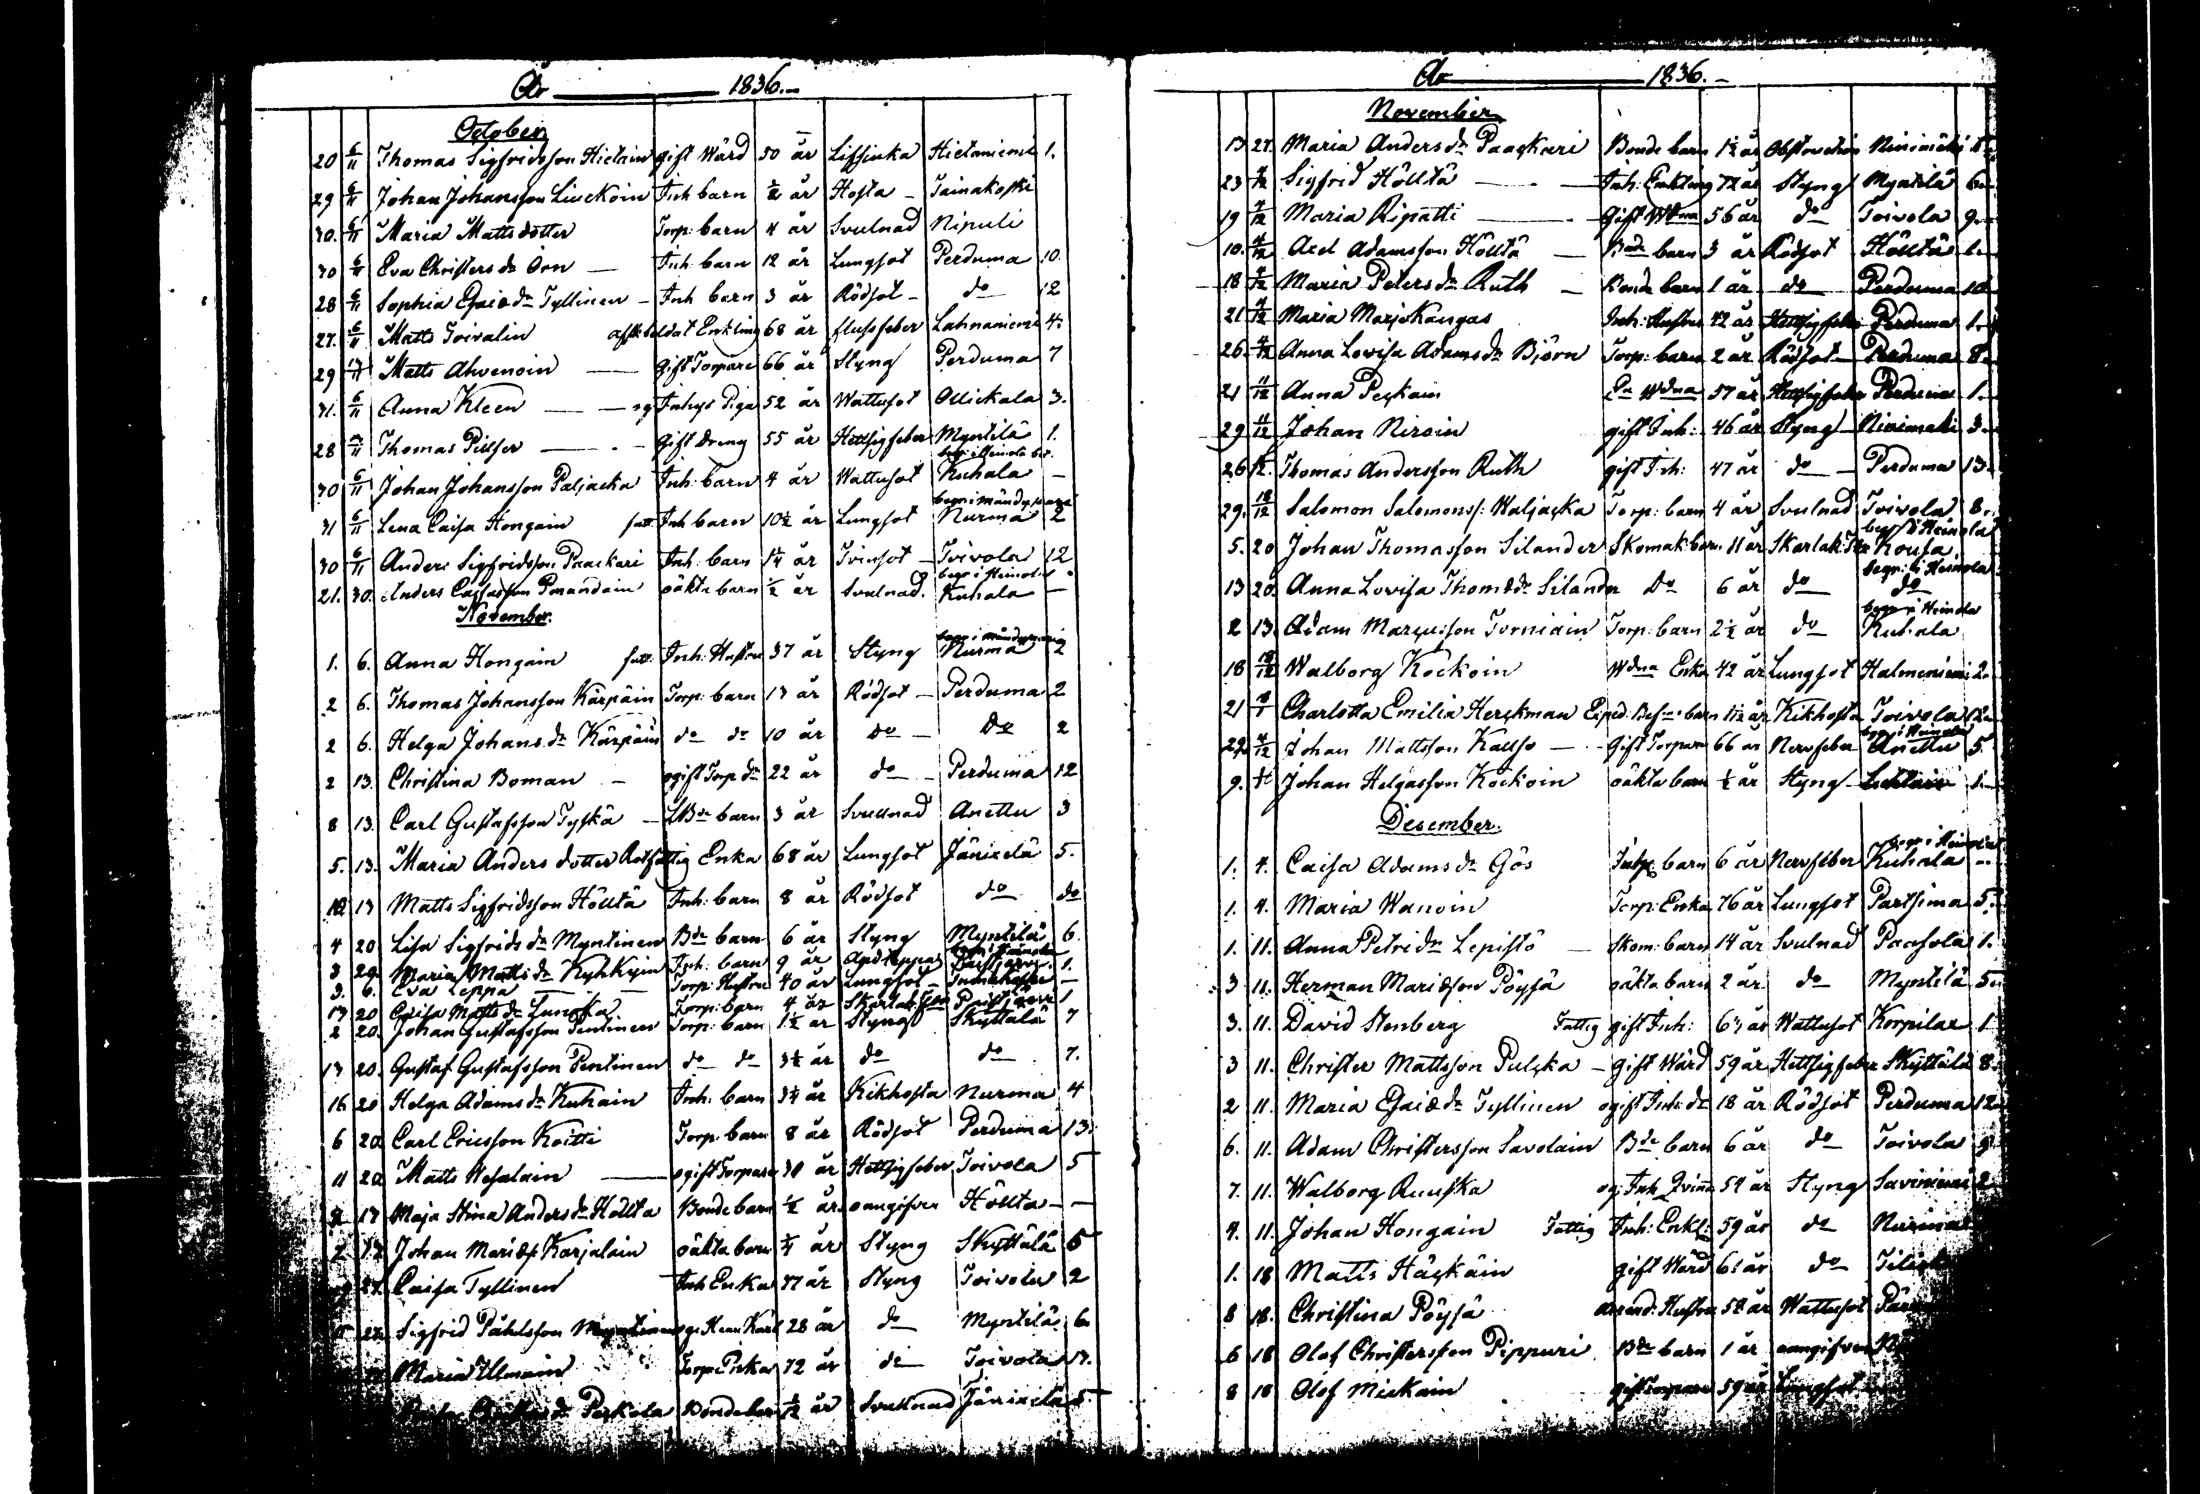 År 1836.
October
20 6/11 Thomas Sigfridsson Hietain gift Wärd 50 år Lifsjuka Hietaniemi 1.
29 6/11 Johan Johansson Liuckoin Inh barn ½ år Hosta Tainakoski
30. 6/11 Maria Mattsdotter Torp: barn 4 år Svulnad Nipuli
30 6/11 Eva Christers dr Örn Inh. barn 12 år Lungsot Perduma 10.
28 6/11 Sophia Esaiæ dr Tyllinen Inh barn 3 år Rödsot do 12
27. 6/11 Matts Toivalin afsk. Soldat Enkling 68 år flussfeber Lahnaniemi 4.
29 Matts Ahvenoin Gift Torpare 66 år Styng Perduma 7
31. 6/11 Anna Kleen og Inhys Piga 52 år Wattusot Ollickala 3.
28 6/11 Thomas Pilfer Gift Dreng 55 år Hettsigfeber Myntilä 1.
30 6/11 Johan Johansson Paljacka Inh: barn 4 år Wattusot Kuhala –
31 6/11 Lena Caisa Hongain fatt. Inh barn 10½ år Lungsot Nurma 2
30 6/11 Anders Sigfridsson Paackari Inh: barn 1¼ år Tvinsot Toivola 12
21. 30. Anders Caisasson oäkta barn ½ år Svulnad. Kuhala –
November.
1. 6. Anna Hongain fatt. Inh: Hustru 37 år Styng Nurma 2
2 6. Thomas Johansson Kärpäin Torp: barn 13 år Rödsot Perduma 2
2 6. Helga Johans dr Kärpäin do do 10 år do Do 2
2 13. Christina Boman ogift Torp dr 22 år do Perduma 12
8 13. Carl Gustafsson Tyskä barn 3 år Svullnad Anettu 3
5. 13. Maria Anders dotter Enka 68 år Lungsot Järvelä 5.
10 13 Matts Sigfridsson Hölltä Inh: barn 8 år Rödsot do do
4 20 Lisa Sigfrids dr Myntinen Bde barn 6 år Styng Myntilä 6.
3 20 Maria Matts dr Kyhkyin Inh: barn 9 år 1.
3. 6. Eva Leppä Torp: Hustru 40 år Lungsot –
17 20 Caisa Matts dr Torp: barn 4 år 1
2 20. Johan Gustafsson Pentinen Torp: barn 1½ år Styng Skyttälä 7
13 20. Gustaf Gustafsson Pentinen do do 3½ år do do 7.
16 20 Helga Adams dr Kuhain Inh: barn 3¼ år Kikhosta Nurma 4
6 20 Carl Ericsson Koitti Torp: barn 8 år Rödsot Perduma 13.
11 20 Matts Wesalain ogift Torpare 30 år Hettsigfeber Toivola 5
17 Maja Stina Anders dr Höllta Bonde barn ½ år oangifven Höllta –
2 Johan Mariæs. Karjalain oäkta barn ¼ år Styng Skyttälä 5
27. Caisa Tyllinen Inh Enka 77 år Styng Toivola 2
27. Sigfrid Påhlsson 28 år do Myntilä 6.
Maria Ulmain Torp: Enka 72 år do Toivola 13.
dr Perkola Bondebarn ½ år Svullnad Järvelä 5
År 1836.
November
13 27. Maria Anders dr Paackari Bonde barn 1½ år Obstruction Niniinäki
23 4/12 Sigfrid Hölltä Inh: Enkling 72 år Styng Myntilä 6
19 4/12 Maria Ripatti Gift Wdna 56 år do Toivola 9.
10. 4/12 Axel Adamsson Hölltä Bde barn 3 år Rödsot Hölltä
18 4/12 Maria Peters dr Ruth Bonde barn 1 år do Perduma 10
21 4/12 Maria Marjokangas Inh: Hustru 42 år Hettsigfeber Perduma 1.
26. 4/12 Anna Lovisa Adams dr Björn Torp: barn 2 år Rödsot Perduma 8
21 11/12 Anna Peckain Wdna 57 år Hettsigfeber Perduma 1.
29 11/12 Johan Niroin gift Inh: 46 år Styng Ninimaki 3
26 Thomas Andersson Ruth gift Inh: 47 år do Perduma 13
29. 18/12 Salomon Salomons/: Waljacka Torp: barn 4 år Svulnad Toivola 8.
5. 20 Johan Thomasson Silander Skomak: barn 11 år begr: i Heinola Kousa.
13 20. Anna Lovisa Thomæ dr Silander Do 6 år do begr: i Heinola do
2 13. Adam Marcusson Torniain Torp: barn 2½ år do begr i Heinola Kuhala
18 18/12 Walborg Kockoin Wdna Enka 42 år Lungsot Halmeniemi 2.
21 Charlotta Emilia Herckman barn Kikhosta Toivola 12
29. 4/12 Johan Mattsson Gift Torpare 66 år Nervfeber begr i Heinola Anettu 5.
9. Johan Helgasson Kockoin oäkta barn ½ år Styng 1.
Desember.
1. 4. Caisa Adams dr Gös barn 6 år Nervfeber begr i Heinola Kuhala
1. 4. Maria Wanoin Torp: Enka 76 år Lungsot Partsima 5.
1. 11. Anna Petri dr Lepistö Skom: barn 14 år Svulnad Paasola 1.
3 11. Herman Mariæson Pöysä oäkta barn 2 år do Myntilä 5
3. 11. David Stenberg Fattig gift Inh: år Wattusot Korpilax 1
3 11. Christer Mattsson Pulcka gift Wärd 59 år Hettsigfeber Skyttälä 8.
2 11. Maria Esaiæ dr Tyllinen ogift Inh: dr 18 år Rödsot Perduma 12
6. 11. Adam Christersson Savolain Bde barn 6 år do Toivola 9
7. 11. Walborg Ruuska og: Inh Qvinna 54 år Styng Saviniemi 2
4. 11. Johan Hongain Fattig Inh: Enkl: 59 år do Nurma
1. 18 Matts Häckäin gift Wärd år do
8 18. Christina Pöysä Arrend: Hustru 54 år Wattusot
6 18 Olof Christersson Pippuri Bde barn 1 år oangifven
8 18 Olof Mickain gift Torpare 59 år Lungsot